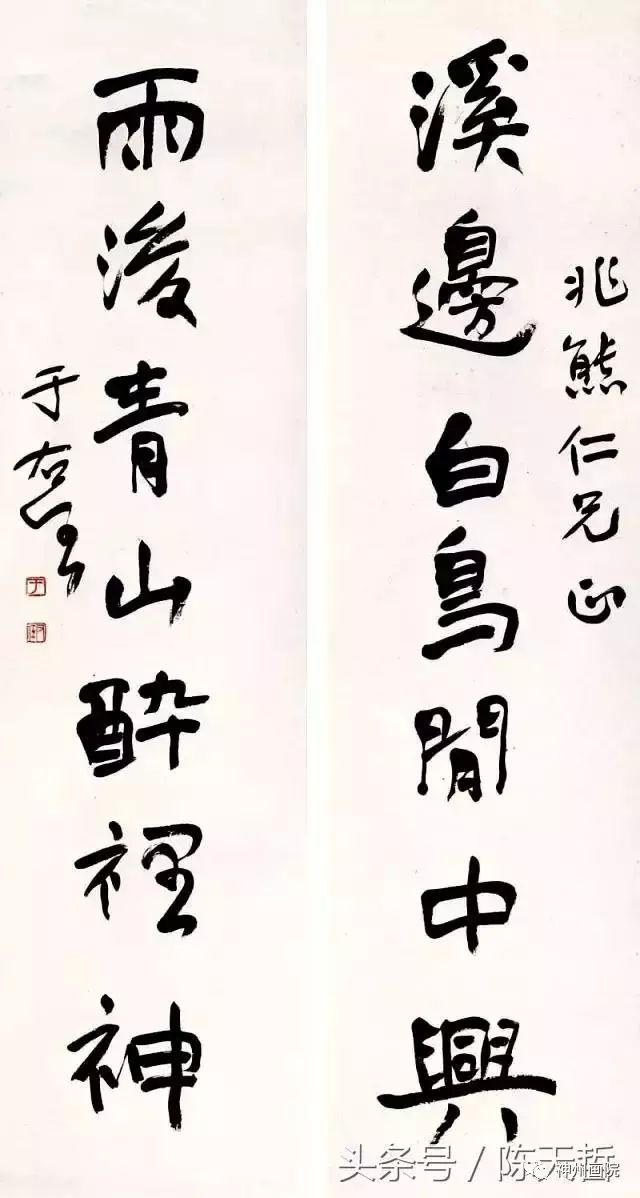 兆熊仁兄正
溪邊白鳥閒中興
雨後青山醉裡神
于右任
头条号 / 陈无哲
神州画院